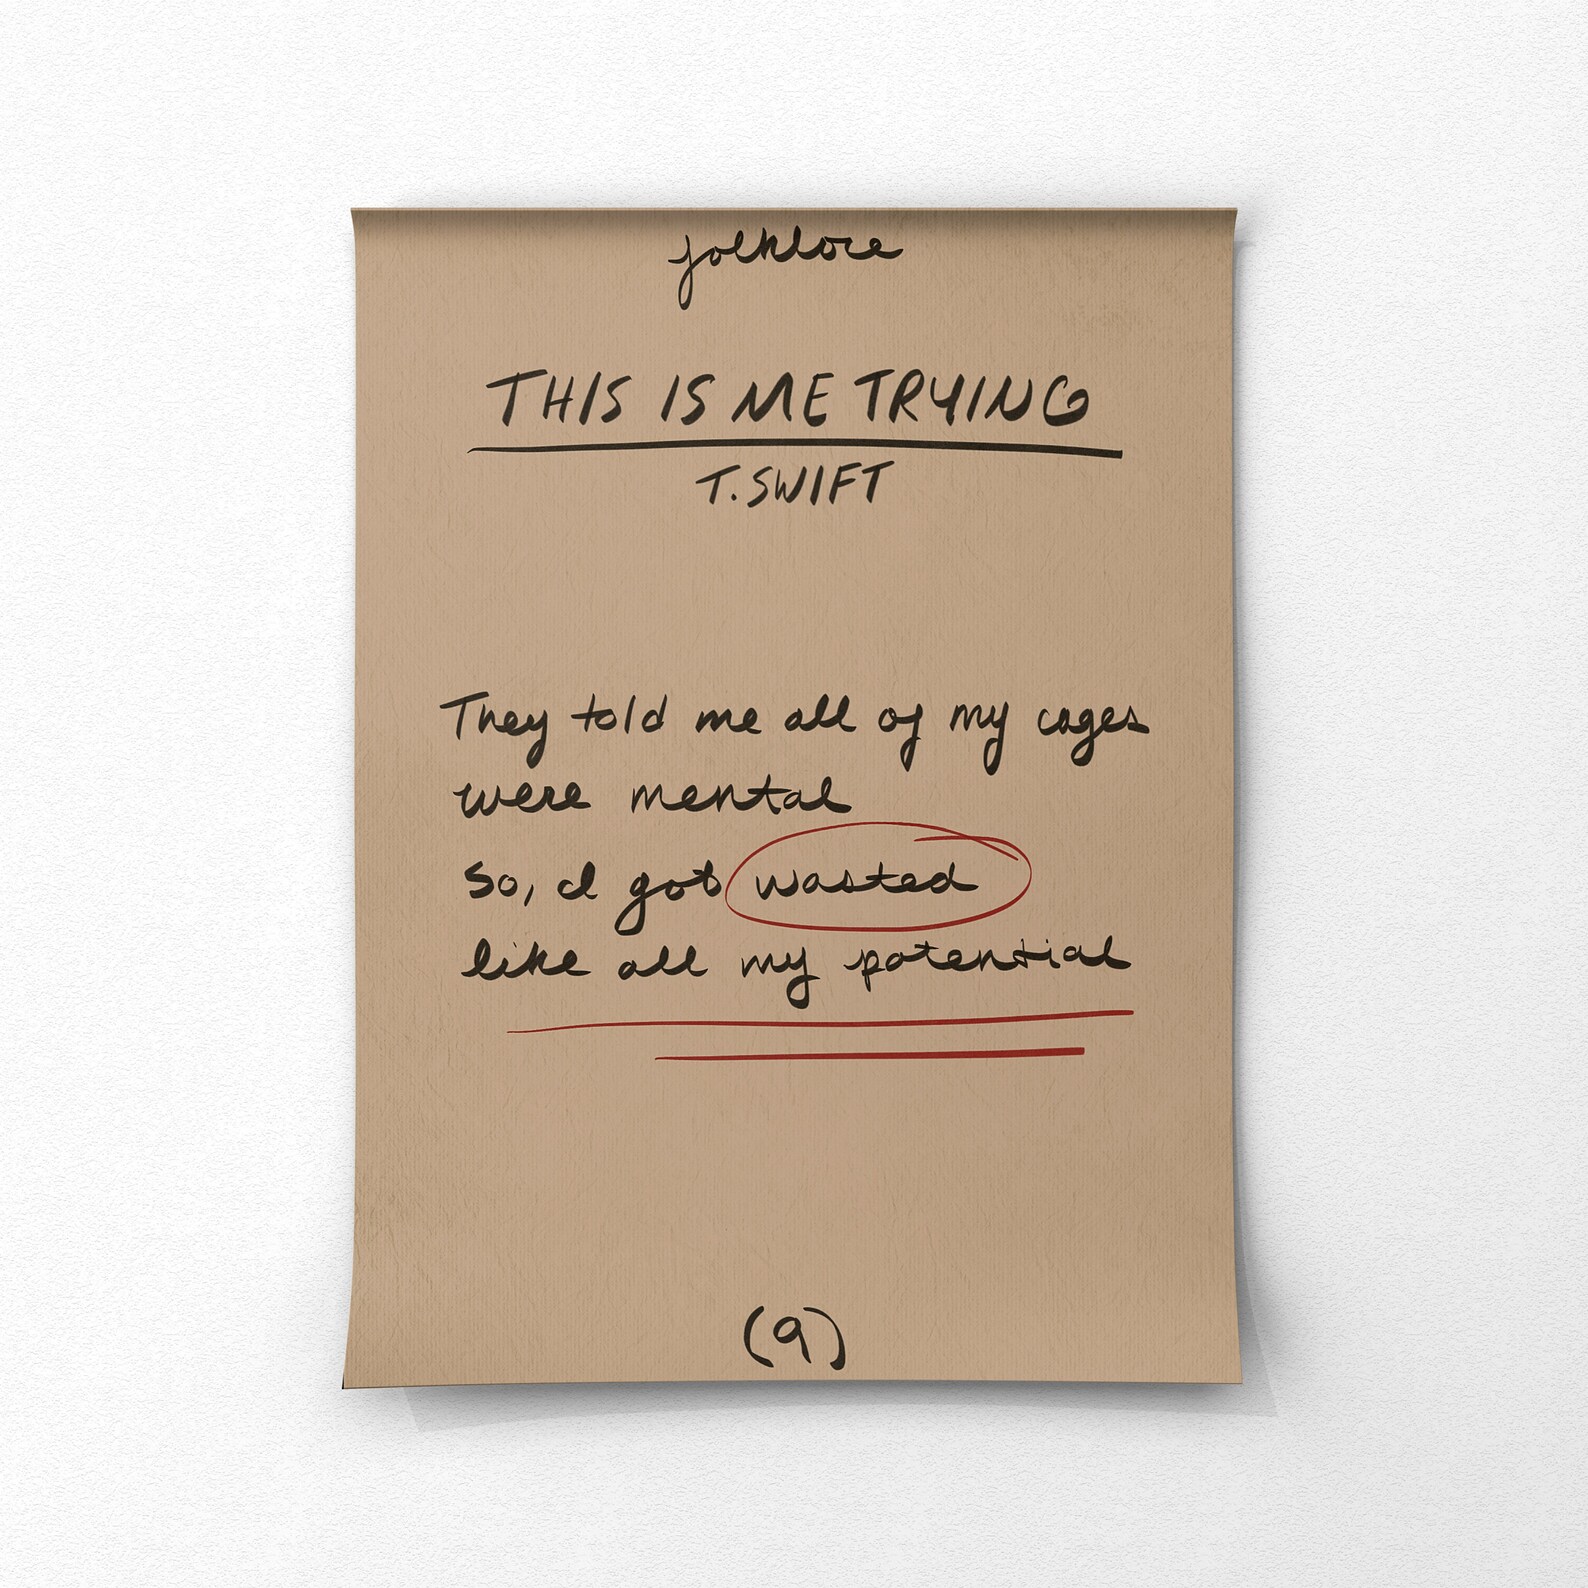 folklore
THIS IS ME TRYING
T. SWIFT
They told me all of my cages
were mental
So, I got wasted
like all my potential
(9)